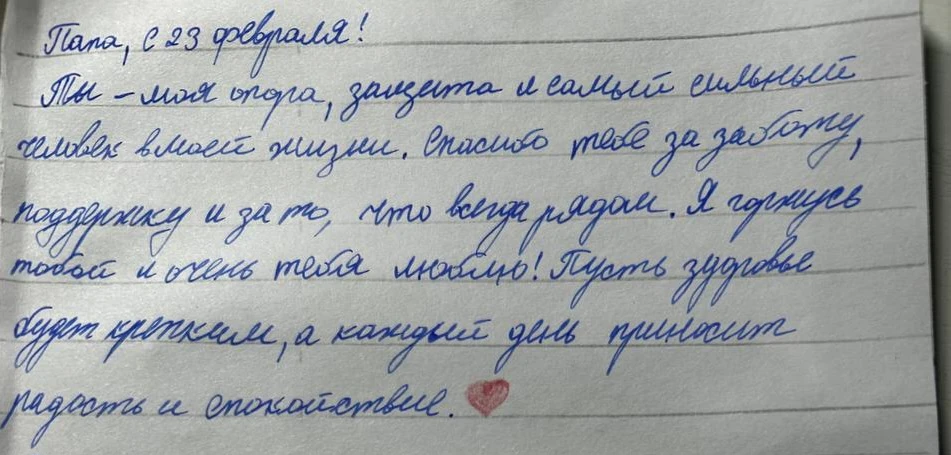 Папа, с 23 февраля!
Ты – моя опора, защита и самый сильный
человек в моей жизни. Спасибо тебе за заботу,
поддержку и за то, что всегда рядом. Я горжусь
тобой и очень тебя люблю! Пусть здоровье
будет крепким, а каждый день приносит
радость и спокойствие.